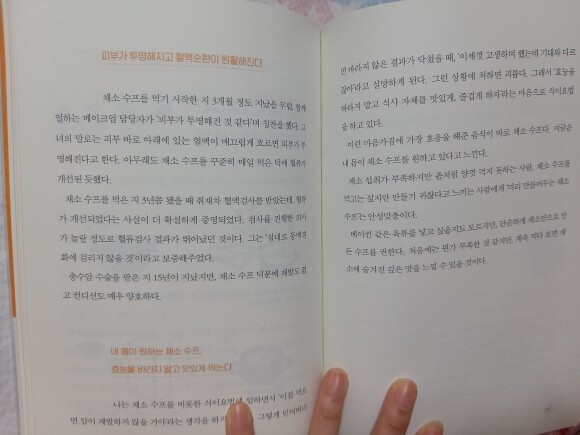 피부가 투명해지고 혈액순환이 원활해진다
채소 수프를 먹기 시작한 지 3개월 정도 지났을 무렵, 함께
일하는 메이크업 담당자가 '피부가 투명해진 것 같다'며 칭찬을 했다. 그
녀의 말로는 피부 바로 아래에 있는 혈액이 매끄럽게 흐르면 피부가 투
명해진다고 한다. 아무래도 채소 수프를 꾸준히 매일 먹은 덕에 혈류가
개선된 듯했다.
채소 수프를 먹은 지 3년쯤 됐을 때 취재차 혈액검사를 받았는데, 혈류
가 개선되었다는 사실이 더 확실하게 증명되었다. 검사를 진행한 의사
가 놀랄 정도로 혈류검사 결과가 뛰어났던 것이다. 그는 '절대로 동맥경
화에 걸리지 않을 것'이라고 보증해주었다.
충수암 수술을 받은 지 15년이 지났지만, 채소 수프 덕분에 재발도 없
고 컨디션도 매우 양호하다.
내 몸이 원하는 채소 수프,
효능을 바라지 말고 맛있게 먹는다
나는 채소 수프를 비롯한 식이요법에 임하면서 '이걸 먹으
면 암이 재발하지 않을 거야'라는 생각을 하지 그렇게 믿어버리
면 바라지 않은 결과가 닥쳤을 때, '이제껏 고생하며 했는데 기대와 다르
잖아'라고 실망하게 된다. 그런 상황에 처하면 괴롭다. 그래서 '효능을
바라지 말고 식사 자체를 맛있게, 즐겁게 하자'라는 마음으로 식이요법
을 하고 있다.
이런 마음가짐에 가장 호응을 해준 음식이 바로 채소 수프다. 지금은
내 몸이 채소 수프를 원하고 있다고 느낀다.
채소 섭취가 부족하지만 좀처럼 양껏 먹지 못하는 사람, 채소 수프를
먹고는 싶지만 만들기 귀찮다고 느끼는 사람에게 '미리 만들어두는 채소
수프'는 안성맞춤이다.
베이컨 같은 육류를 넣고 싶을지도 모르지만, 단순하게 채소만으로 만
든 수프를 권한다. 처음에는 뭔가 부족한 것 같지만, 계속 먹다 보면 채
소에 숨겨진 깊은 맛을 느낄 수 있을 것이다.